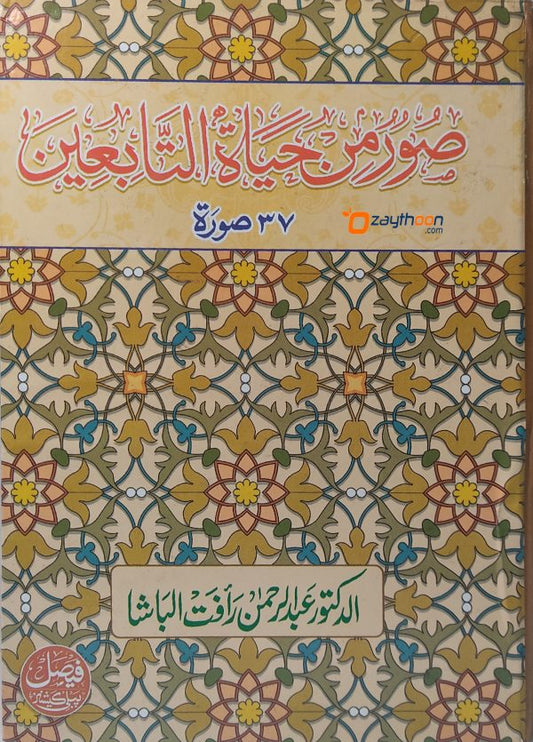 صُوَرٌ مِنْ حَيَاةِ التَّابِعِينَ
٣٧ صورة
zaythoon
.com
الدكتور عبدالرحمن رأفت الباشا
فیصل
پبلیکیشنز